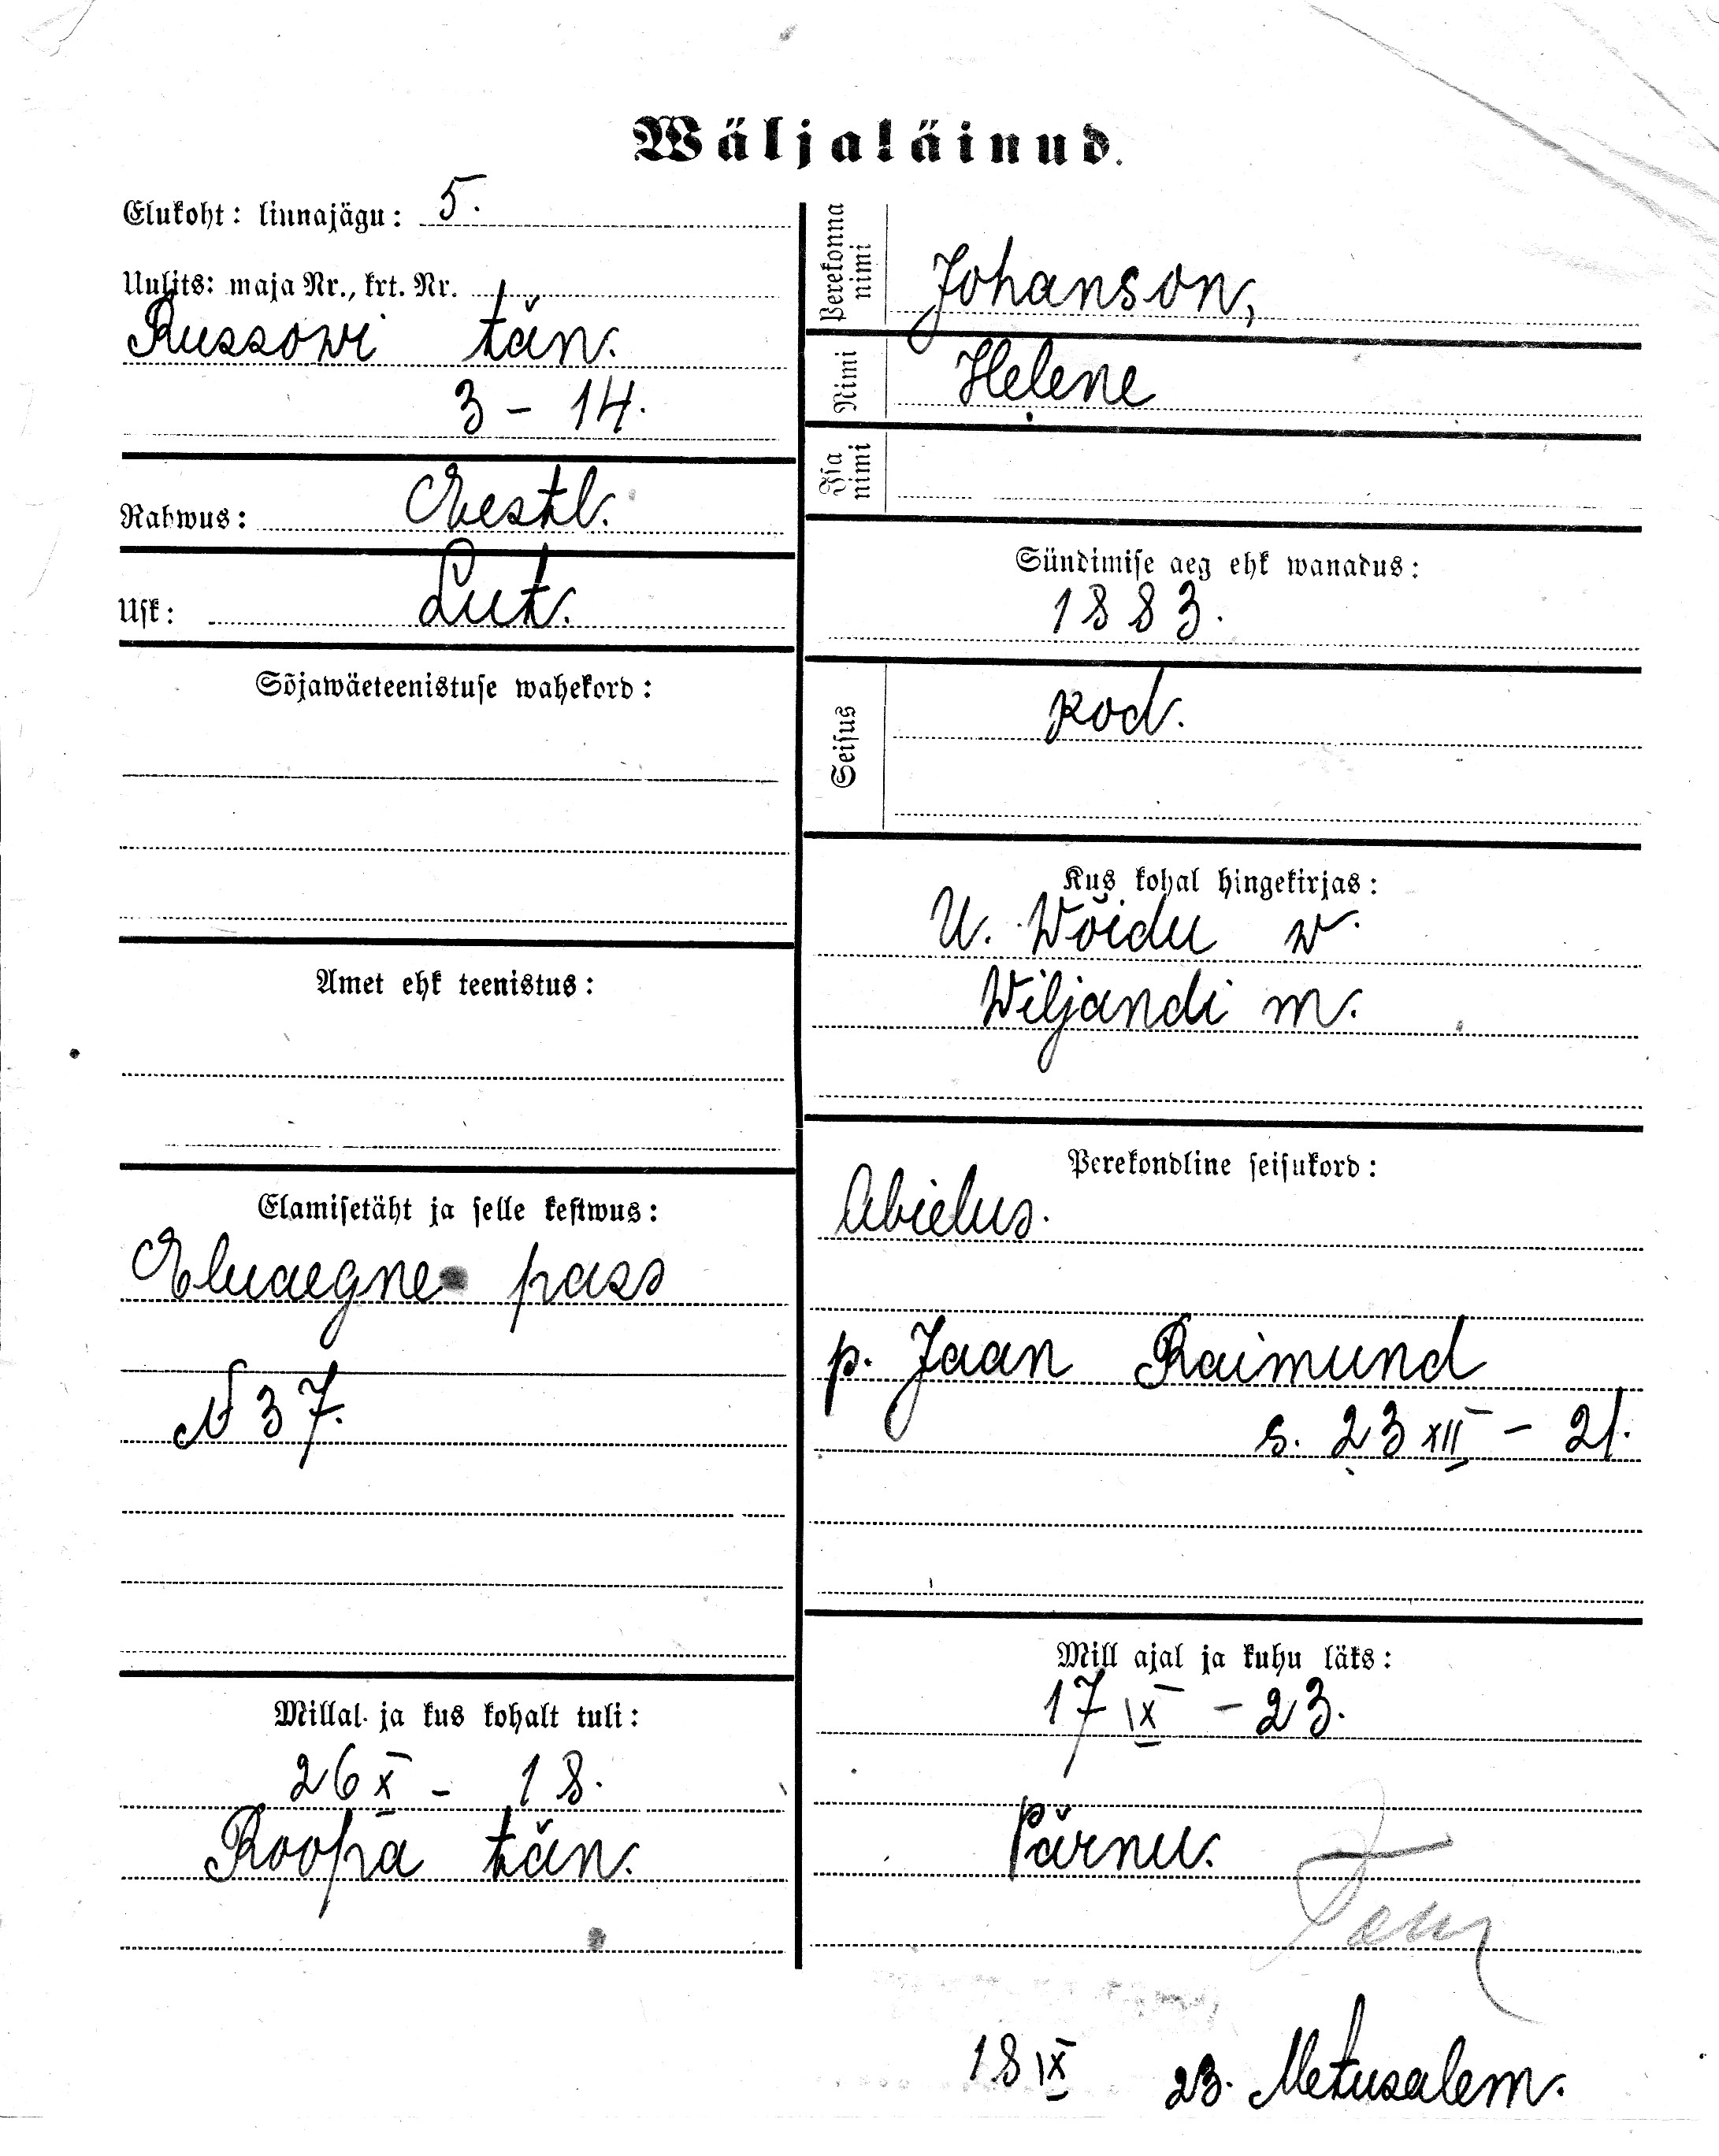 Wäljaläinud.
Elukoht: linnajägu: 5.
Uulits: maja Nr., krt. Nr.
Russowi tän.
3 - 14.
Rahwus: Eestl.
Usk: Lut.
Sõjawäeteenistuse wahekord:
Amet ehk teenistus:
Elamisetäht ja selle kestwus:
Eluaegne pass
N 37.
Millal ja kus kohalt tuli:
26 X - 18.
Roopa tän.
Perekonna nimi Johanson,
Nimi Helene
Isa nimi
Sündimise aeg ehk wanadus:
1883.
Seisus kod.
Kus kohal hingekirjas:
U. Wõidu w.
Wiljandi m.
Perekondline seisukord:
Abielus.
p. Jaan Raimund
s. 23 XII - 21.
Mill ajal ja kuhu läks:
17 IX - 23.
Pärnu.
18 IX 23. Metusalem.